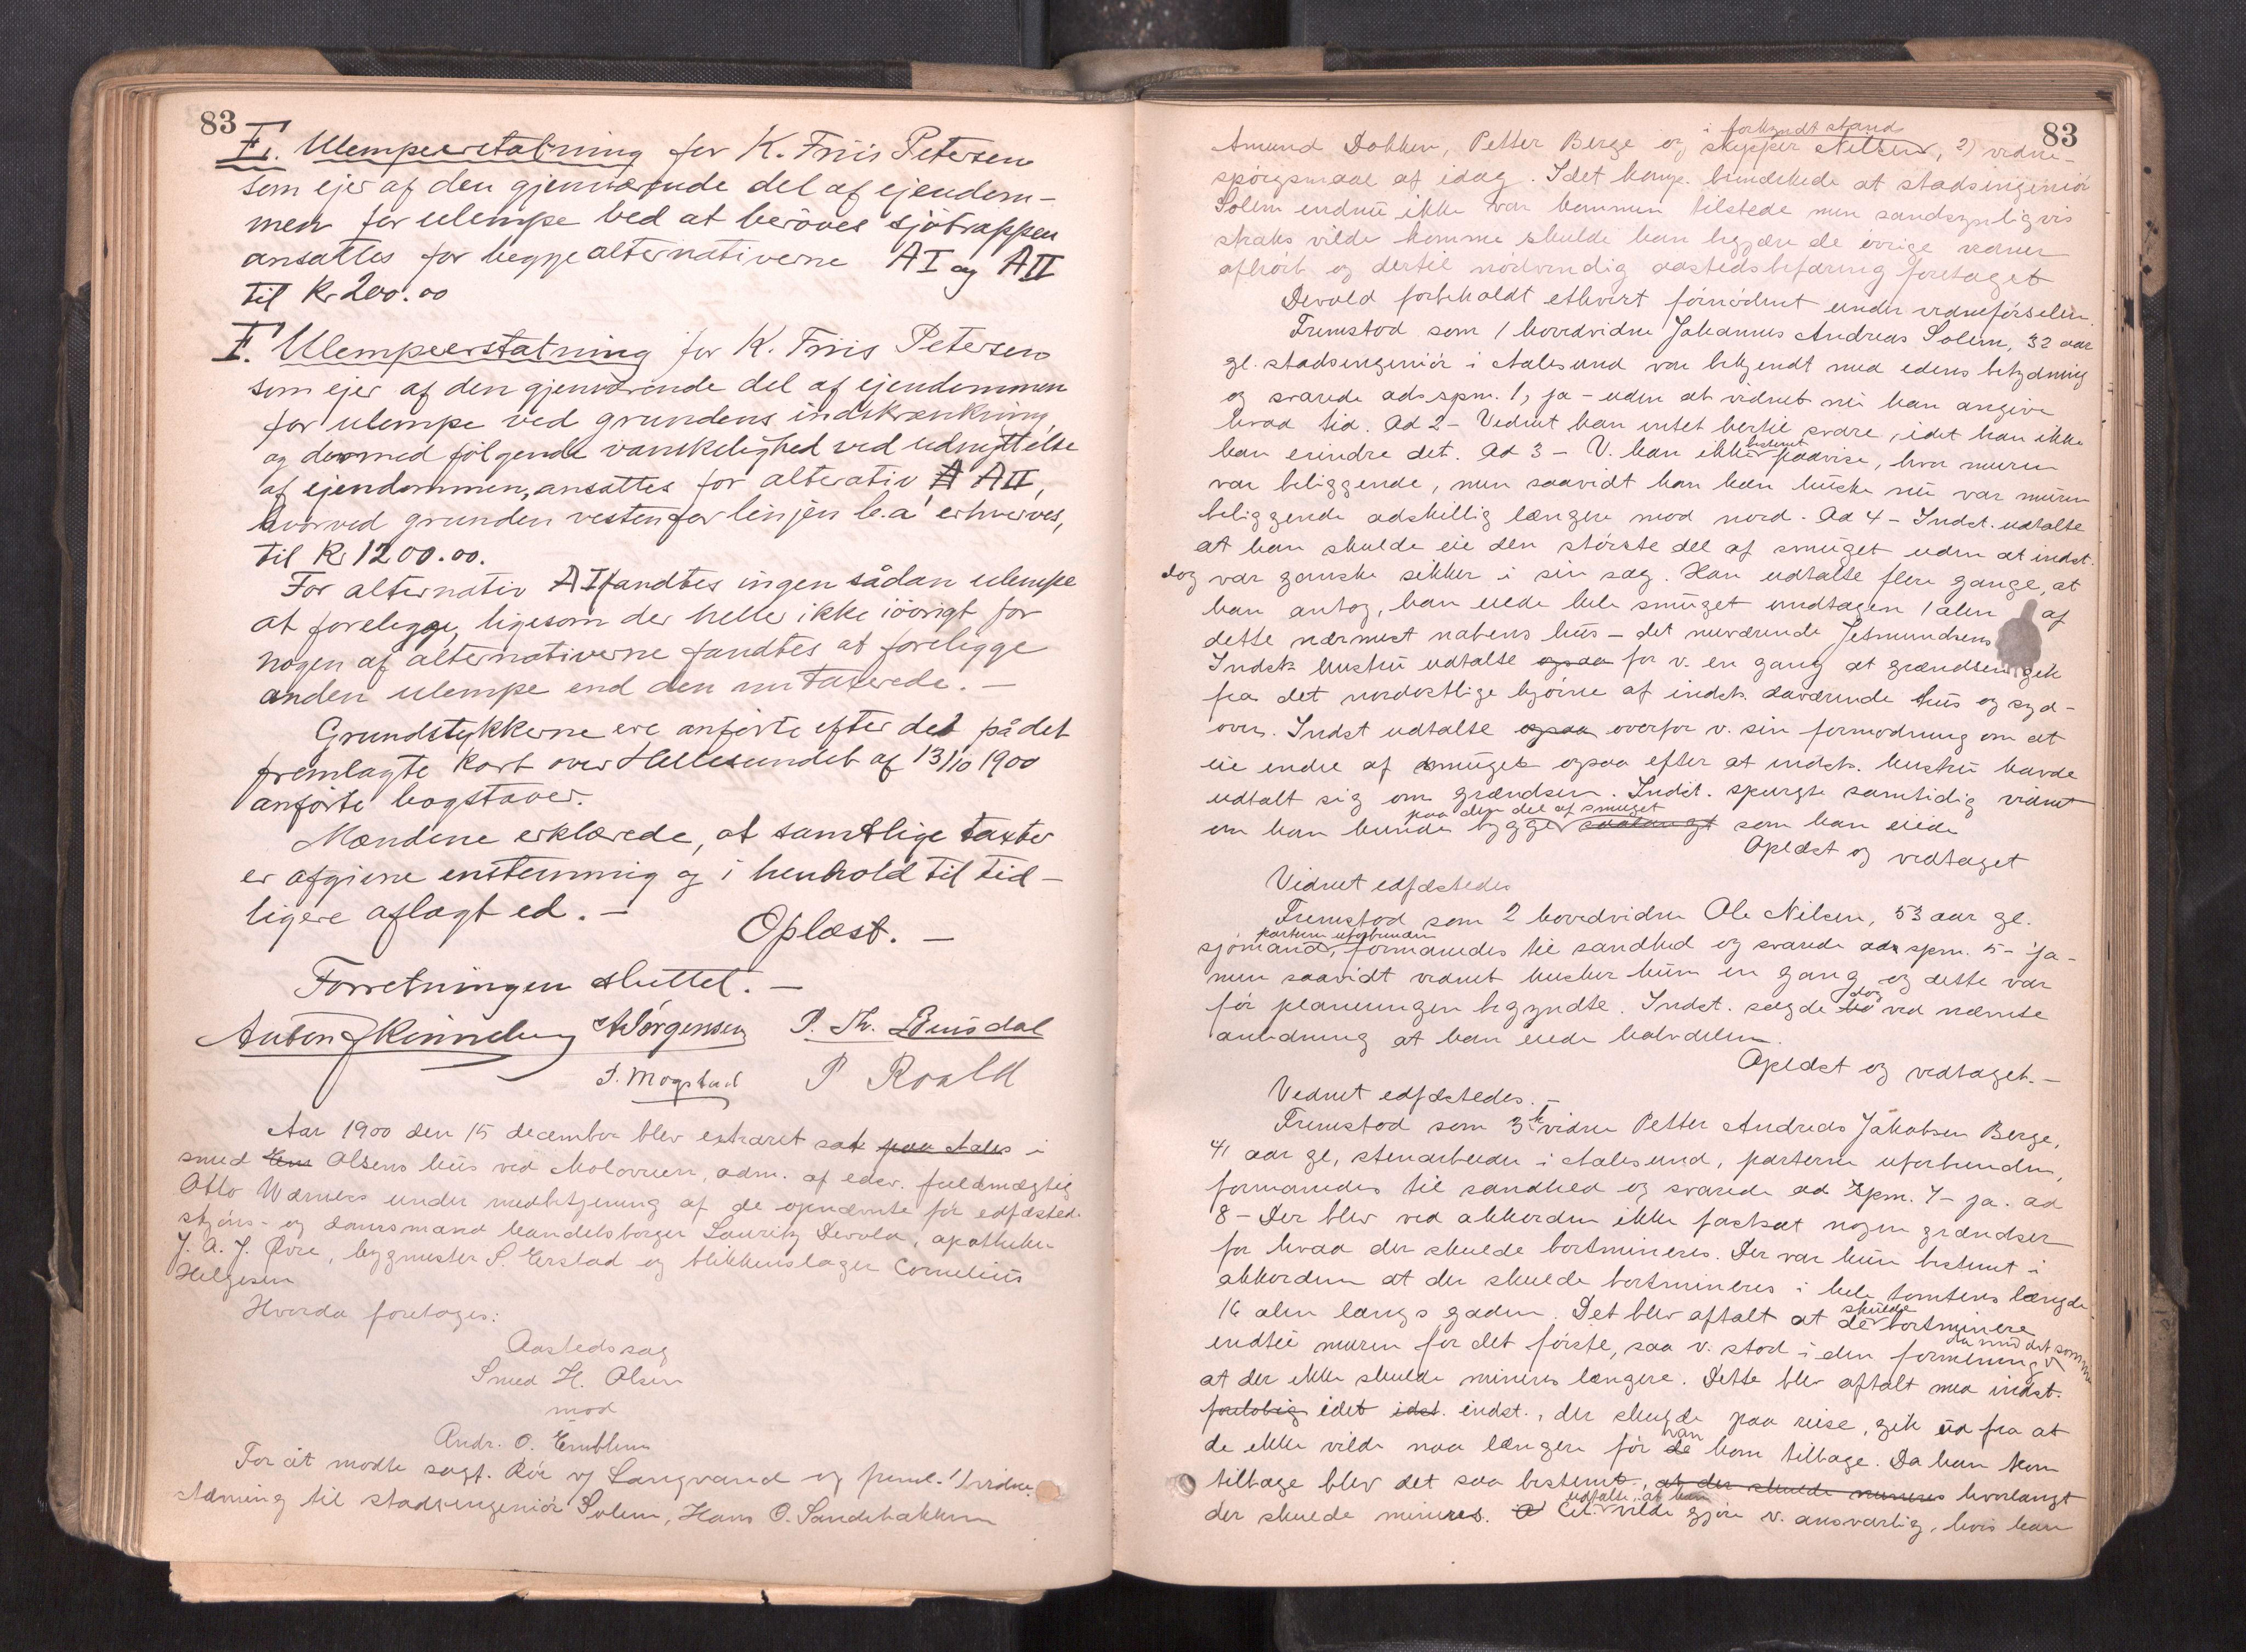 83
E. Ulempeerstatning for K. Friis Petersen
som ejer af den gjenværende del af ejendom-
men for ulempe ved at beröves sjötrappen
ansattes for begge alternativerne A I og A II
til Kr 200.00
F. Ulempeerstatning for K. Friis Petersen
som ejer af den gjenværende del af ejendommen
for ulempe ved grundens indskrænkning
og dermed fölgende vanskelighed ved udnyttelse
af ejendommen, ansattes for alterativ A A II,
hvorved grunden vestenfor linjen b.a' erhverves,
til Kr 1200.00.
For alternativ A I fandtes ingen sådan ulempe
at foreligge, ligesom der heller ikke iövrigt for
nogen af alternativerne fandtes at foreligge
anden ulempe end den nu taxerede. —
Grundstykkerne ere anförte efter det på det
fremlagte Kart over Hellesundet af 13/10 1900
anförte bogstaver.
Mændene erklærede, at samtlige taxter
er afgivne enstemmig og i henhold til tid-
ligere aflagt ed. —
Oplæst. —
Forretningen sluttet. —
Anton Rönneberg A Jørgensen P. Th. Eunsdal
S. Mogstad P Roald
Aar 1900 den 15 december blev extraret sat paa Aales i
smed Olsens hus ved Moloveien, adm. af edsv. fuldmægtig
Otto Warness under medbetjening af de opnævnte för edfæsted.
skjöns- og domsmænd handelsborger Lauritz Devold, apotheker
J. A. J. Øvre, bygmester S. Erstad og blikkenslager Cornelius
Helgesen
Hvorda foretoges:
Aastedssag
Smed H. Olsen
mod
Andr. O. Emblem
For cit mödte sagf. Röe v/ Langvand og freml. 1) vidne-
stævning til stadsingeniör Solem, Hans O. Sandebakken
83
i forkyndt stand
Amund Dokken, Petter Berge og skipper Nilsen, 2) vidne-
spörgsmaal af idag. Idet komp. bemærkede at stadsingeniör
Solem endnu ikke var kommen tilstede men sandsynligvis
straks vilde komme skulde han begjære de övrige vidner
afhört og dertil nödvendig aastedsbefaring foretaget
Devold forbeholdt ethvert fornödent under vidneförselen.
Fremstod som 1 hovedvidne Johannes Andreas Solem, 32 aar
gl. stadsingeniör i Aalesund var bekjendt med edens betydning
og svarede ad spm. 1, ja - uden at vidnet nu kan angive
hvad tid. Ad 2 - Vidnet kan intet hertil svare, idet han ikke
bestemt
kan erindre det. Ad 3 - V. kan ikke paavise, hvor muren
var beliggende, men saavidt han kan huske nu var muren
beliggende adskillig længere mod nord. Ad 4 - Indst. udtalte
at han skulde eie den störste del af smuget uden at indst.
dog var ganske sikker i sin sag. Han udtalte flere gange, at
han antog, han eiede hele smuget undtagen 1 alen af
dette nærmest nabens hus - det nuværende Jetmundsens
Indst. hustru udtalte ogsaa for v. en gang at grændsen gik
fra det nordostlige hjörne af indst. daværende hus og syd-
over. Indst udtalte ogsaa overfor v. sin formodning om at
eie endel af smuget ogsaa efter at indst. hustru havde
udtalt sig om grændsen. Indst. spurgte samtidig vidnet
paa den del af smuget
om han kunde bygge saalangt som han eiede
Oplæst og vedtaget
Vidnet edfæstedes
Fremstod som 2 hovedvidne Ole Nilsen, 53 aar gl.
parterne uforbunden
sjömand, formanedes til sandhed og svarede ad spm. 5 - ja -
men saavidt vidnet husker kun en gang og dette var
dog
för planeringen begyndte. Indst. sagde ved nævnte
anledning at han eiede halvdelen.
Oplæst og vedtaget. —
Vidnet edfæstedes. —
Fremstod som 3. h. vidne Petter Andreas Jakobsen Berge,
41 aar gl, stenarbeider i Aalesund, parterne uforbunden,
formanedes til sandhed og svarede ad spm. 7 - ja. ad
8 - Der blev ved akkorden ikke fastsat nogen grændser
for hvad der skulde bortmineres. Der var kun bestemt i
akkorden at der skulde bortmineres i hele tomtens længde
16 alen langs gaden. Det blev aftalt at de skulde bortminere
indtil muren for det förste, saa v. stod i den formening
at der ikke skulde mineres længere. Dette blev aftalt med indst.
foreløbig idet idst. indst., der skulde paa reise, gik ud fra at
de ikke vilde naa længere för han kom tilbage. Da han kom
tilbage blev det saa bestemt, at der skulde mineres hvorlangt
udtalte, at han
der skulde mineres. Cit. vilde gjöre v. ansvarlig, hvis han